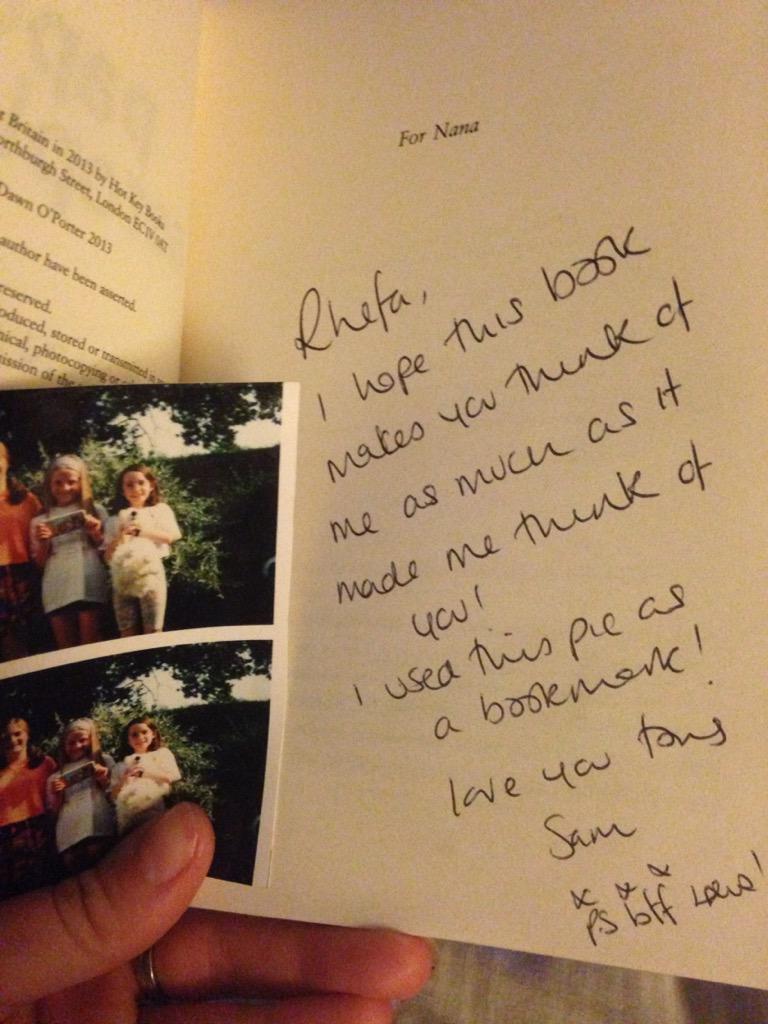 t Britain in 2013 by Hot Key Books
orthburgh Street, London EC1V 0AT
Dawn O'Porter 2013
author have been asserted.
reserved.
oduced, stored or transmitted in
nical, photocopying or
mission of the
For Nana
Rhefa,
I hope this book
makes you think of
me as much as it
made me think of
you!
I used this pic as
a bookmark!
love you tons
Sam
x x x
PS bff